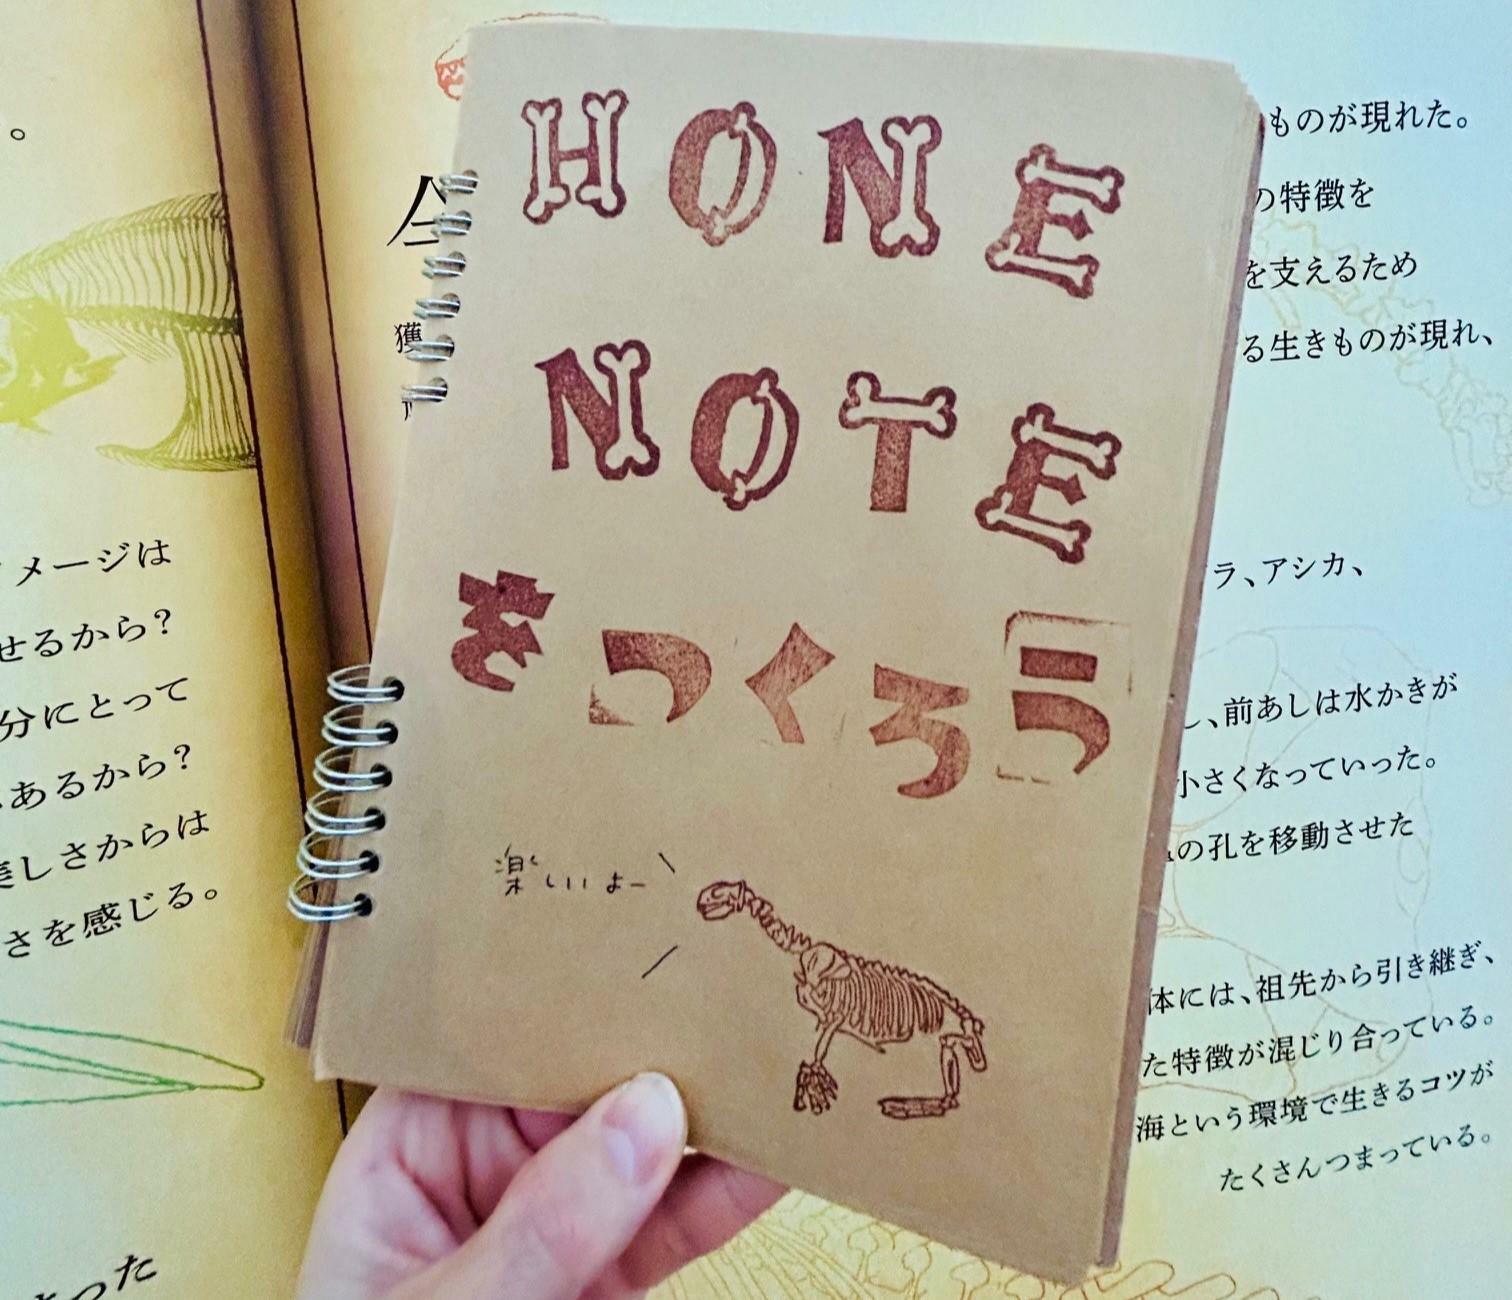 HONE
NOTE
をつくろう
楽しいよー
。
メージは
せるから?
分にとって
あるから?
美しさからは
さを感じる。
った
今
獲
ものが現れた。
の特徴を
を支えるため
る生きものが現れ、
ラ、アシカ、
し、前あしは水かきが
小さくなっていった。
の孔を移動させた
体には、祖先から引き継ぎ、
た特徴が混じり合っている。
海という環境で生きるコツが
たくさんつまっている。